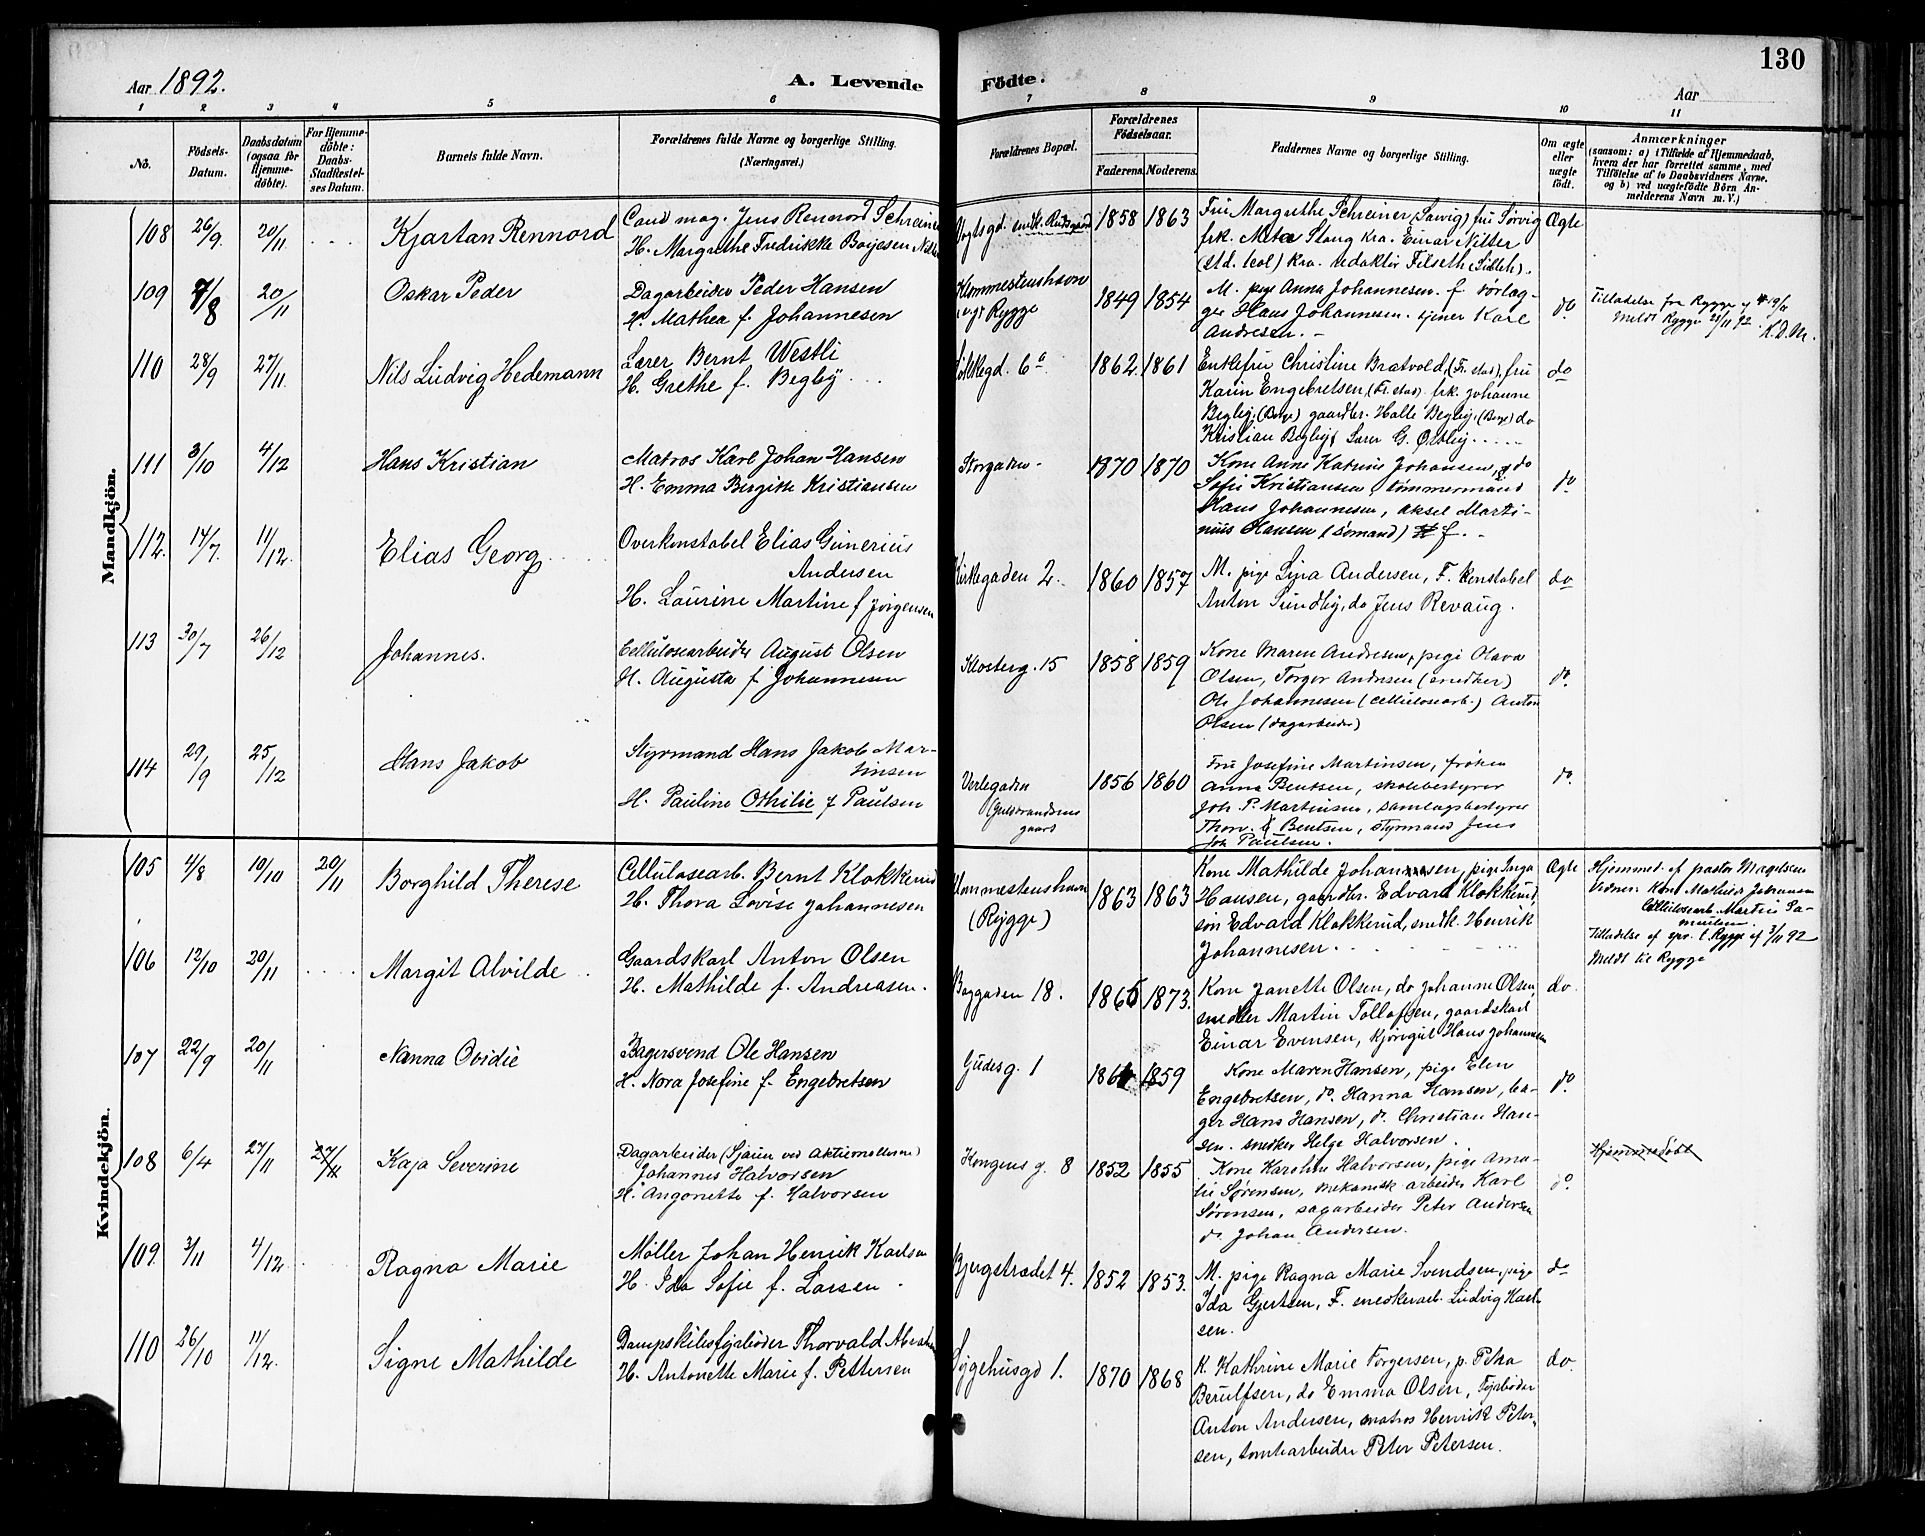 130
Aar 1892.
A. Levende Födte.
Aar
1 2 3 4 5 6 7 8 9 10 11
No.
Födsels-Datum.
Daabsdatum (ogsaa for Hjemme-döbte).
For Hjemme-döbte: Daabs-Stadfæstel-ses Datum.
Barnets fulde Navn.
Forældrenes fulde Navne og borgerlige Stilling.
(Næringsvei.)
Forældrenes Bopæl.
Forældrenes Födselsaar.
Faderens. Moderens.
Faddernes Navne og borgerlige Stilling.
Om ægte eller uægte födt.
Anmærkninger
(saasom: a) i Tilfælde af Hjemmedaab, hvem der har forrettet samme, med Tilföielse af to Daabsvidners Navne. og b) ved uægtefödte Börn An-melderens Navn m. V.)
Mandkjön.
108 26/9 20/11 Kjartan Rennord
Cand mag. Jens Rennord Schreiner
H. Margrethe Fredrikke Boijesen
Vogtsgd. 1858 1863
Fru Margrethe Schreiner, fru Sörvig
frk. Meta Stang kra. Einar
kra. redaktör Filseth
Ægte
109 7/8 20/11 Oskar Peder
Dagarbeider Peder Hansen
H. Mathea f. Johannesen
Klommestenshavn
Rygge
1849 1854
M. pige Anna Johannesen. f. forlæg-
ger Hans Johannesen. tjener Karl
Andresen.
do
Tilladelse fra Rygge
Meldt Rygge
110 28/9 27/11 Nils Ludvig Hedemann
Lærer Bernt Westli
H. Grethe f. Begby
6a 1862 1861
Enkefru Christine Bratvold, (Fr. stad), fru
Karin Engebretsen, (Fr. stad) frk. Johanne
Begby, (Borge) gaardbr. Halle Begby, (Borge) do
Kristian Begby, Lærer G. Østby
do
111 3/10 4/12 Hans Kristian
Matros Karl Johan Hansen
H. Emma Birgitte Kristiansen
Storgaden 1870 1870
Kone Anne Katrine Johansen, do
Sofie Kristiansen, tömmermand
Hans Johannesen, Aksel Marti-
nius Hansen (sömand) f.
do
112. 14/7. 11/12. Elias Georg
Overkonstabel Elias Gunerius
Andersen
H. Laurine Martine f Jörgensen
Kirkegaden 2. 1860 1857
M. pige Lina Andersen, F. konstabel
Anton Sundby, do Jens Revaug.
do
113 30/7 26/12 Johannes.
Cellulosearbeider August Olsen
H. Augusta f. Johannesen
Klosterg. 15 1858 1859
Kone Maren Andresen, pige Olava
Olsen, Torger Andresen (snedker)
Ole Johannesen (cellulosearb.) Anton
Olsen (dagarbeider)
do.
114 29/9 25/12 Hans Jakob
Styrmand Hans Jakob Mar-
tinsen
H. Pauline Othilie f Paulsen
Verlegaden
Gulbrandsens
gaard
1856 1860
Fru Josefine Martinsen, fröken
Anna Bentsen, skolebestyrer
Joh. P. Martinsen, samlagsbestyrer
Thorv. Bentsen, styrmand Jens
Joh Paulsen.
do.
Kvindekjön.
105 4/8 19/10 20/11 Borghild Therese
Cellulosearb. Bernt Klokkerud
H. Thora Lovise Johannesen
Klommestenshavn
(Rygge)
1863 1863
Kone Mathilde Johannesen, pige Inga
Hansen, gaardbr. Edvard Klokkerud,
sön Edvard Klokkerud, snedk. Henrik
Johannesen.
Ægte
Hjemmed. af pastor Magelsen
Vidner: Kone Mathilde Johansen
Cellulosearb. Martin
Tilladelse af spr. t. Rygge af 3/11 92
Meldt til Rygge
106 12/10 20/11 Margit Alvilde
Gaardskarl Anton Olsen
H. Mathilde f. Andreasen.
Baggaden 18. 1865 1873.
Kone Janette Olsen, do Johanne Olsen,
smedker Martin Tollofsen, gaardskarl
Einar Evensen, kjöregut Hans Johannesen
do.
107 22/9 20/11 Nanna Ovidie
Bagersvend Ole Hansen
H. Nora Josefine f. Engebretsen
Gudesg. 1 1859
Kone Maren Hansen, pige Elen
Engebretsen, do. Hanna Hansen, ba-
ger Hans Hansen, do. Christian Han-
sen. snedker Helge Halvorsen.
do.
108 6/4 27/11 27/11 Kaja Severine
Dagarbeider (Sjauer ved Aktiemöllerne)
Johannes Halvorsen
H. Angonette f. Halvorsen
Kongens g. 8 1852 1855
Kone Karoline Halvorsen, pige Ama-
lie Sörensen, mekanisk arbeider Karl
Sörensen, sagarbeider Peter Andersen
do. Johan Andersen.
do.
Hjemmedöbt
109 3/11 4/12 Ragna Marie
Møller Johan Henrik Karlsen
H. Ida Sofie f. Larsen
Bjergstrædet 4. 1852 1853.
M. pige Ragna Marie Svendsen, pige
Ida Gjertsen, F. snedkerarb. Ludvig Karl-
sen.
do
110 26/10 11/12. Signe Mathilde
Dampskibsfyrböder Thorvald
H. Antonette Marie f. Pettersen
Sygehusgd 1. 1870 1868
K. Kathrine Marie Torgersen, p. Petra
Berulfsen, do Emma Olsen, Fyrböder
Anton Andersen, matros Henrik Peter-
sen, tomtearbeider Peter Petersen.
do.